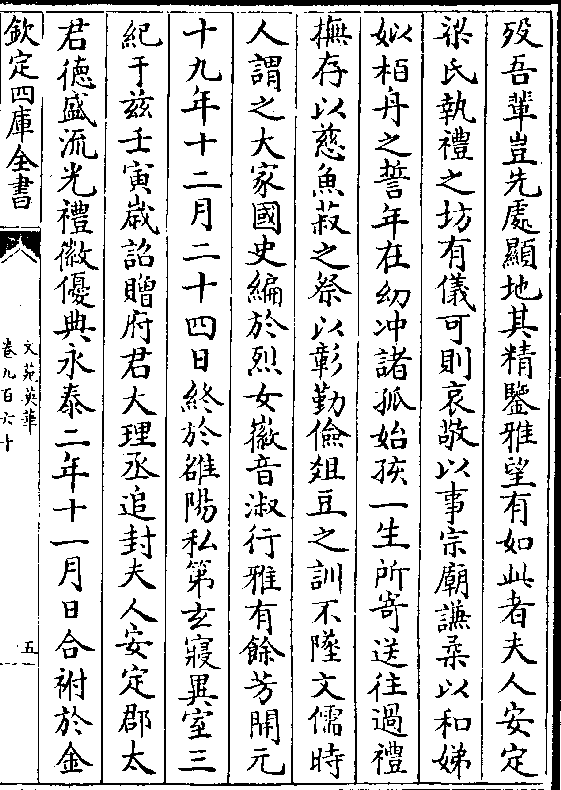 歿吾輩豈先處顯地其精鑒雅望有如此者夫人安定
梁氏執禮之坊有儀可則哀敬以事宗廟謙柔以和娣
姒栢舟之誓年在幼冲諸孤始孩一生所寄送往過禮
撫存以慈魚菽之祭以彰勤儉爼豆之訓不墜文儒時
人謂之大家國史編於烈女徽音淑行雅有餘芳開元
十九年十二月二十四日終於雎陽私第玄寢異室三
紀于兹壬寅嵗詔贈府君大理丞追封夫人安定郡太
君德盛流光禮徽優典永泰二年十一月日合祔於金
欽定四庫全書
文苑英華
卷九百六十
五